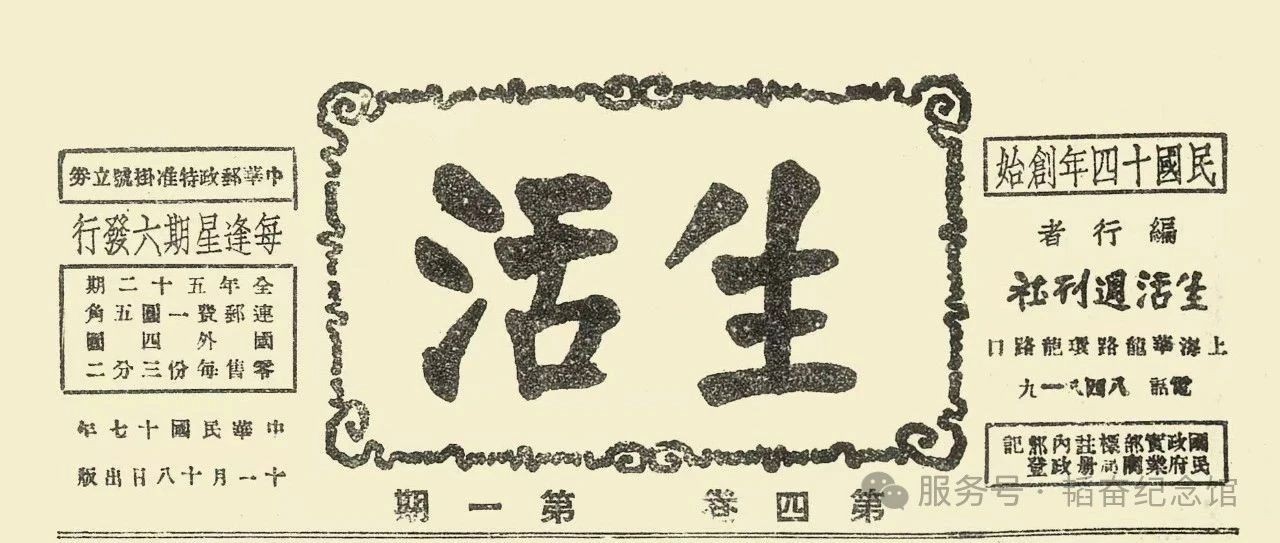 民國十四年創始
編行者
生活週刊社
上海華龍路環龍路口
電話 八四八一九
國民政府實業部
生活
第四卷 第一期
中華郵政特准掛號立券
每逢星期六發行
全年五十二期
連郵費一圓五角
國外四圓
零售每份三分二
中華民國十七年
十一月十八日出版
服务号·韬奋纪念馆